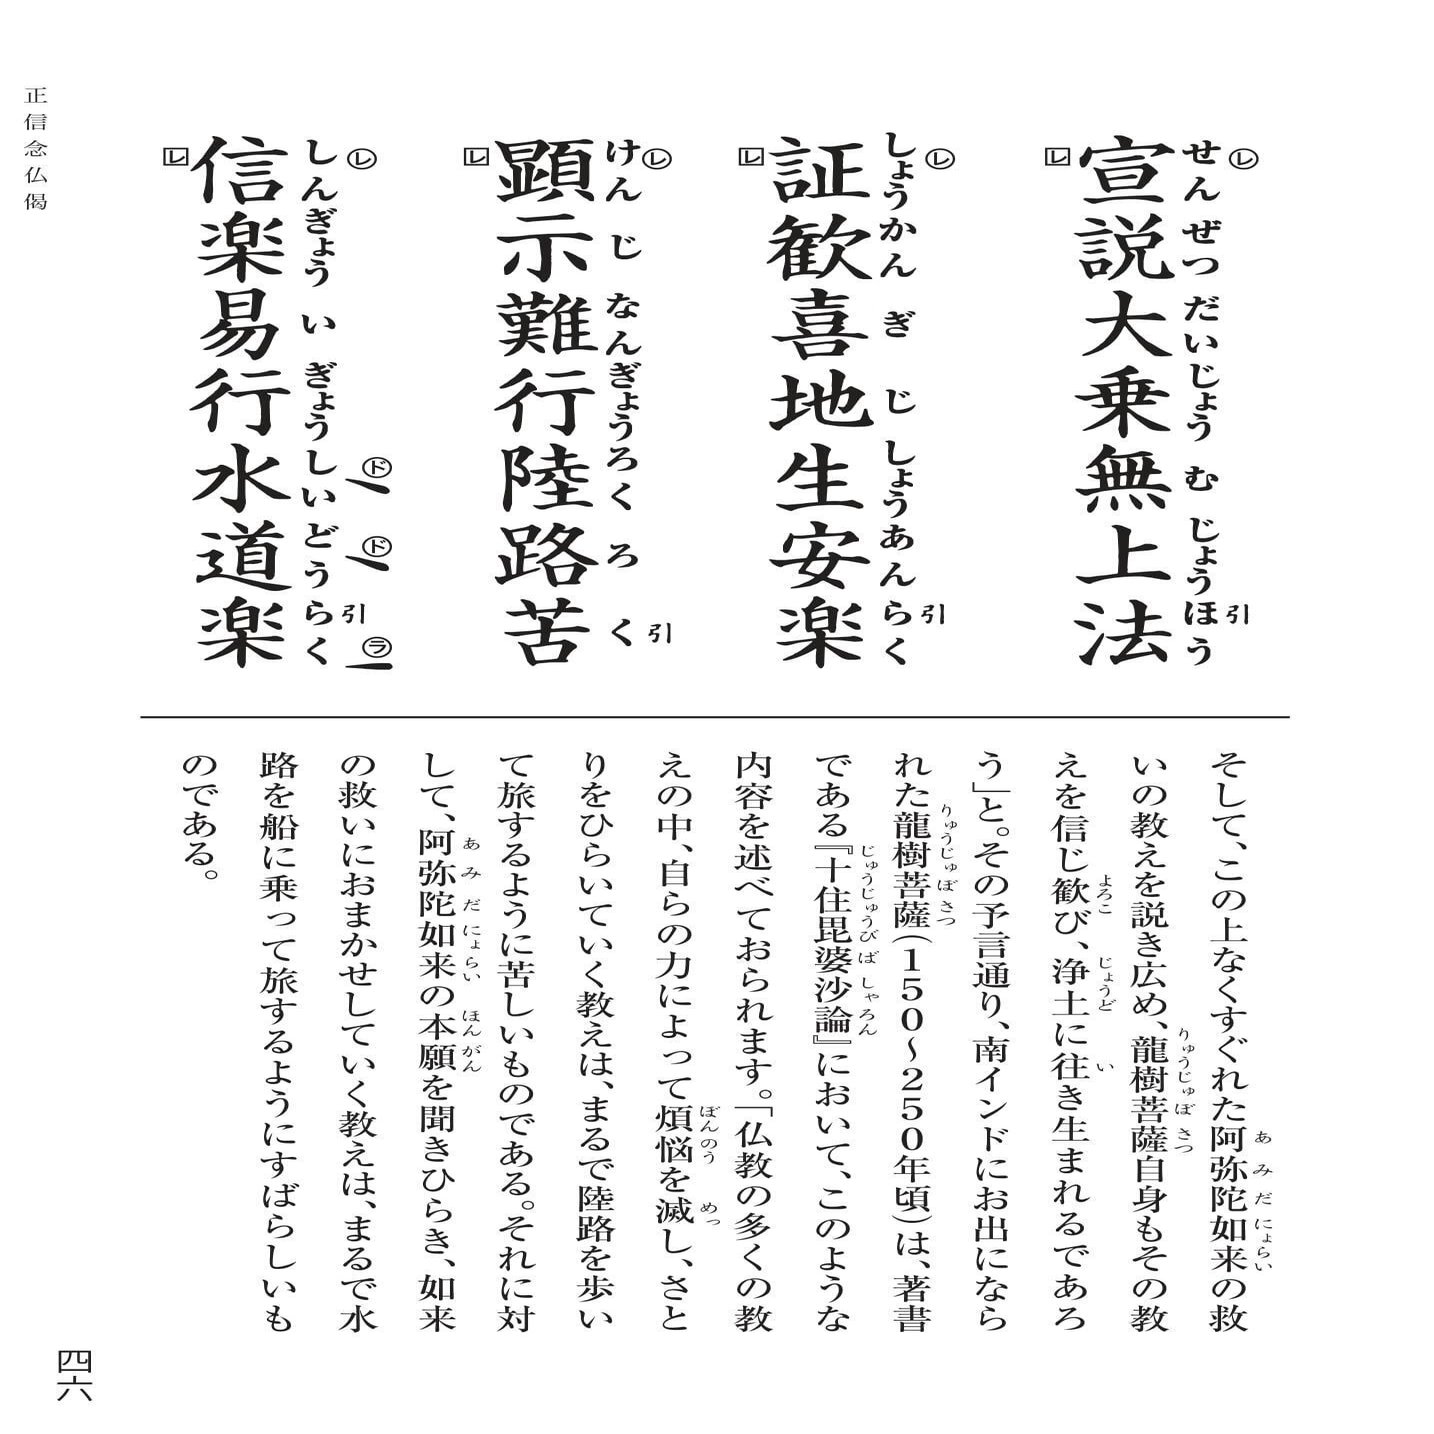 宣説大乗無上法
せんぜつだいじょうむじょうほう
レ
レ
引
証歓喜地生安楽
しょうかんぎじしょうあんらく
レ
レ
引
顕示難行陸路苦
けんじなんぎょうろくろく
レ
レ
引
信楽易行水道楽
しんぎょういぎょうしいどうらく
レ
レ
ド
ド
引
ラ
そして、この上なくすぐれた阿弥陀如来の救
あみだにょらい
いの教えを説き広め、龍樹菩薩自身もその教
りゅうじゅぼさつ
えを信じ歓び、浄土に往き生まれるであろ
よろこ じょうど い
う」と。その予言通り、南インドにお出になら
れた龍樹菩薩(150〜250年頃)は、著書
りゅうじゅぼさつ
である『十住毘婆沙論』において、このような
じゅうじゅうびばしゃろん
内容を述べておられます。「仏教の多くの教
えの中、自らの力によって煩悩を滅し、さと
ぼんのう めっ
りをひらいていく教えは、まるで陸路を歩い
て旅するように苦しいものである。それに対
して、阿弥陀如来の本願を聞きひらき、如来
あみだにょらい ほんがん
の救いにおまかせしていく教えは、まるで水
路を船に乗って旅するようにすばらしいも
のである。
正信念仏偈
四六